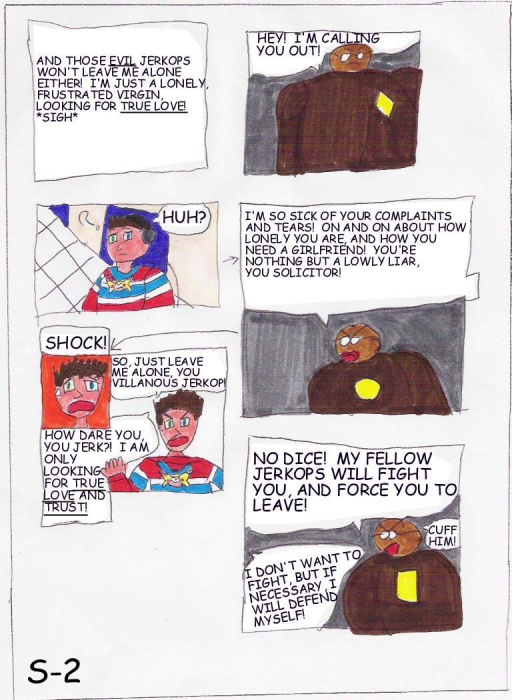 AND THOSE EVIL JERKOPS
WON'T LEAVE ME ALONE
EITHER! I'M JUST A LONELY,
FRUSTRATED VIRGIN,
LOOKING FOR TRUE LOVE!
*SIGH*
HEY! I'M CALLING
YOU OUT!
?
HUH?
I'M SO SICK OF YOUR COMPLAINTS
AND TEARS! ON AND ON ABOUT HOW
LONELY YOU ARE, AND HOW YOU
NEED A GIRLFRIEND! YOU'RE
NOTHING BUT A LOWLY LIAR,
YOU SOLICITOR!
SHOCK!
SO, JUST LEAVE
ME ALONE, YOU
VILLANOUS JERKOP!
HOW DARE YOU,
YOU JERK?! I AM
ONLY
LOOKING
FOR TRUE
LOVE AND
TRUST!
NO DICE! MY FELLOW
JERKOPS WILL FIGHT
YOU, AND FORCE YOU TO
LEAVE!
CUFF
HIM!
I DON'T WANT TO
FIGHT, BUT IF
NECESSARY, I
WILL DEFEND
MYSELF!
S-2